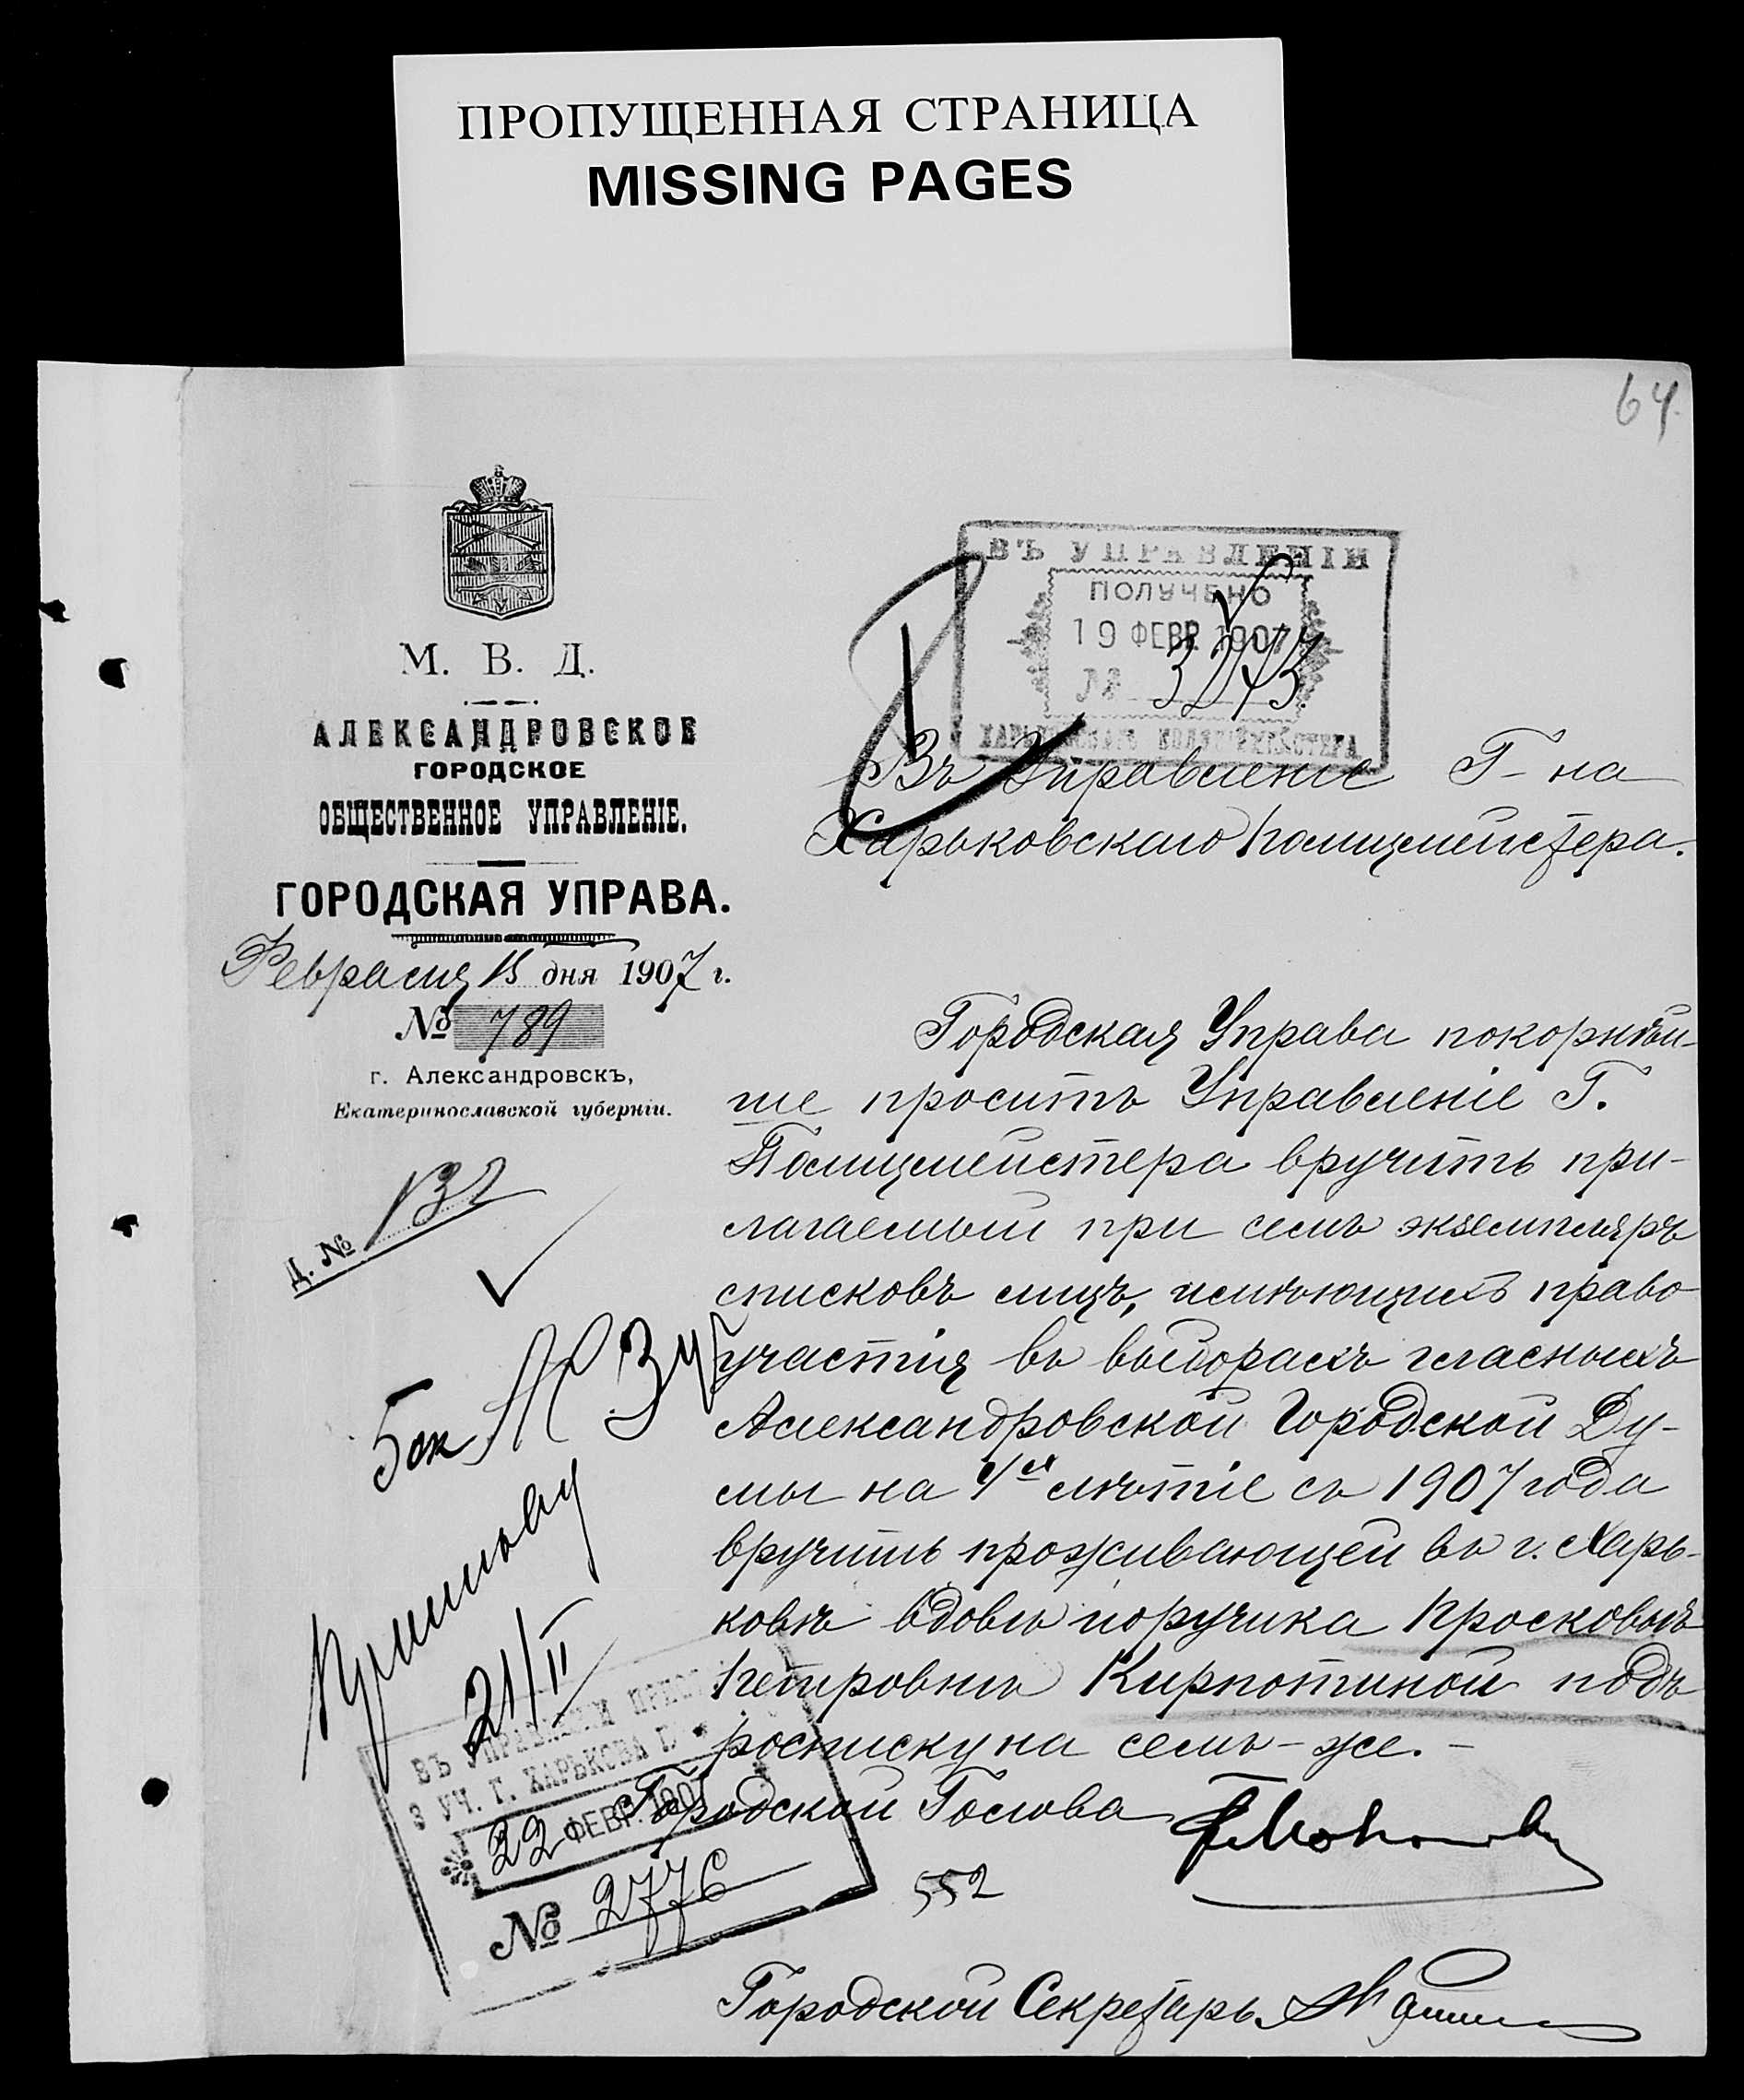 ПРОПУЩЕННАЯ СТРАНИЦА
MISSING PAGES
64
М. В. Д.
АЛЕКСАНДРОВСКОЕ
ГОРОДСКОЕ
ОБЩЕСТВЕННОЕ УПРАВЛЕНІЕ.
ГОРОДСКАЯ УПРАВА.
Февраля 15 дня 1907 г.
№ 789
г. Александровскъ,
Екатеринославской губерніи.
Д. № 132
ВЪ УПРАВЛЕНІИ
ПОЛУЧЕНО
19 ФЕВР. 1907
№
Въ Управленіе Г-на
Харьковскаго Полицмейстера.
Городская Управа покорнѣй-
ше проситъ Управленіе Г.
Полицмейстера вручить при-
лагаемый при семъ экземпляръ
списковъ лицъ, имѣющихъ право
участія въ выборахъ гласныхъ
Александровской Городской Ду-
мы на 4хъ лѣтіе съ 1907 года
вручить проживающей въ г. Харь-
ковѣ вдовѣ поручика Просковьѣ
Петровнѣ Кирпотиной подъ
росписку на семъ-же.-
Городской Голова
552
Городской Секретарь
21/II
ВЪ УПРАВЛЕНІИ
3 УЧ. Г. ХАРЬКОВА
22 ФЕВР. 1907
№ 2776